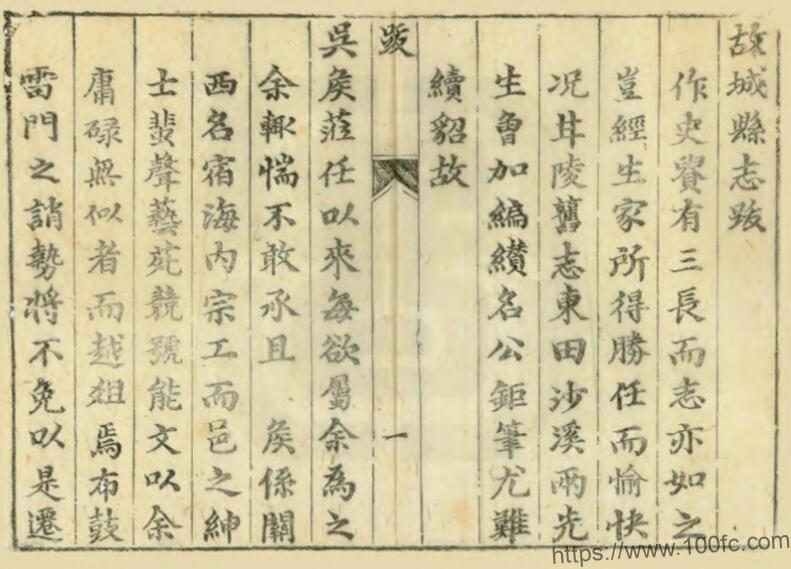 故城縣志跋
作史貲有三長而志亦如之
豈經生家所得勝任而愉快
况甘陵舊志東田沙溪兩先
生曾加編纘名公鉅筆尤難
續貂故
跋
一
吳矦蒞任以來每欲屬余為之
余輒惴不敢承且　矦係關
西名宿海內宗工而邑之紳
士蜚聲藝苑競號能文以余
庸碌無似者而越俎焉布鼓
雷門之誚勢將不免以是遷
https://www.100fc.com